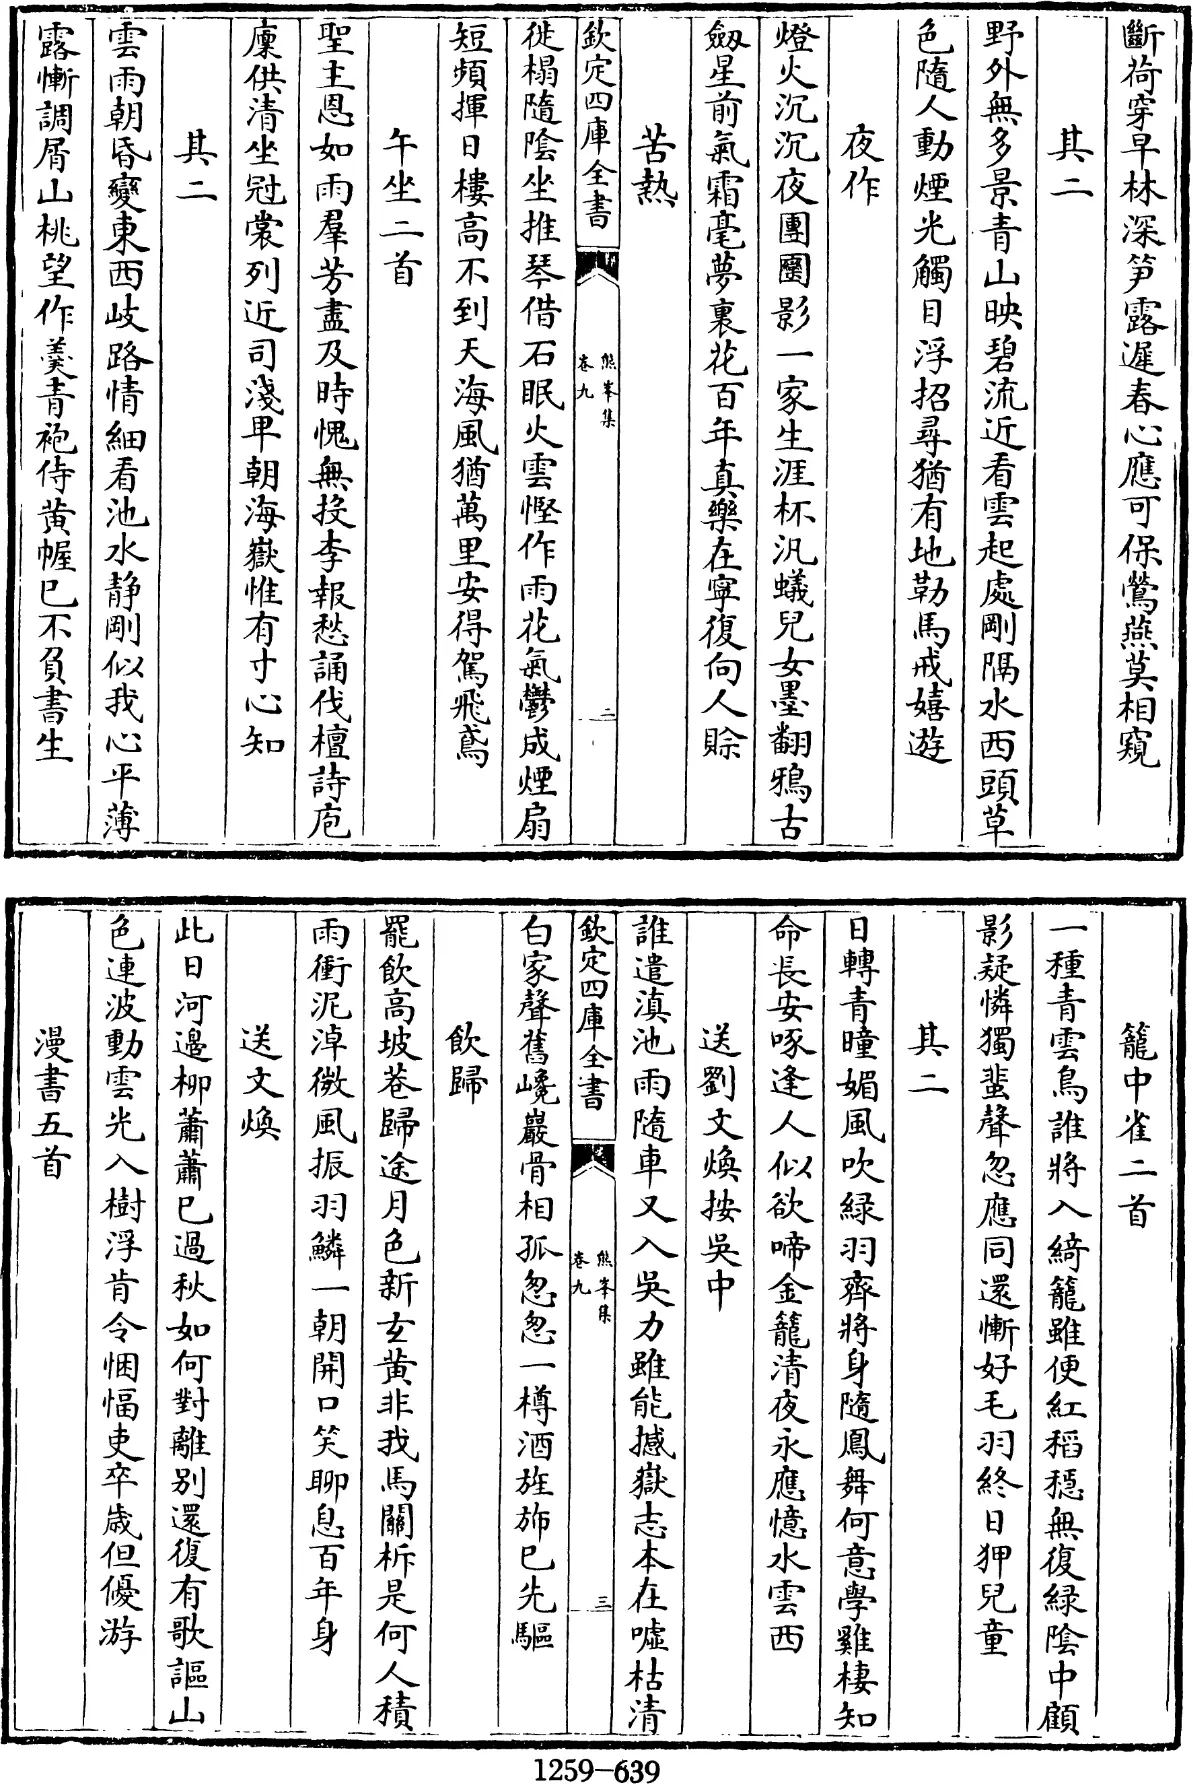 斷荷穿早林深笋露遲春心應可保鶯燕莫相窺
其二
野外無多景青山映碧流近看雲起處剛隔水西頭草
色隨人動煙光觸目浮招尋猶有地勒馬戒嬉遊
夜作
燈火沉沉夜團圞影一家生涯杯汎蟻兒女墨翻鴉古
劔星前氣霜毫夢裏花百年真樂在寧復向人賒
苦熱
欽定四庫全書
熊峯集
卷九
二
徙榻隨陰坐推琴借石眠火雲慳作雨花氣鬱成煙扇
短頻揮日樓高不到天海風猶萬里安得駕飛鳶
午坐二首
聖主恩如雨羣芳盡及時愧無投李報愁誦伐檀詩庖
廩供清坐冠裳列近司淺卑朝海嶽惟有寸心知
其二
雲雨朝昏變東西岐路情細看池水静剛似我心平薄
露慚調屑山桃望作羮青袍侍黄幄已不負書生
籠中雀二首
一種青雲鳥誰將入綺籠雖便紅稻穏無復緑陰中顧
影疑憐獨蜚聲忽應同還慚好毛羽終日狎兒童
其二
日轉青瞳媚風吹緑羽齊將身隨鳳舞何意學雞棲知
命長安啄逢人似欲啼金籠清夜永應憶水雲西
送劉文煥按吳中
誰遣滇池雨隨車又入吳力雖能撼嶽志本在噓枯清
欽定四庫全書
熊峯集
卷九
三
白家聲舊巉巖骨相孤怱怱一樽酒旌斾已先驅
飲歸
罷飲高坡巷歸途月色新玄黄非我馬關柝是何人積
雨衝泥淖微風振羽鱗一朝開口笑聊息百年身
送文煥
此日河邉柳蕭蕭已過秋如何對離别還復有歌謳山
色連波動雲光入樹浮肯令悃愊吏卒歳但優游
漫書五首
1259-639